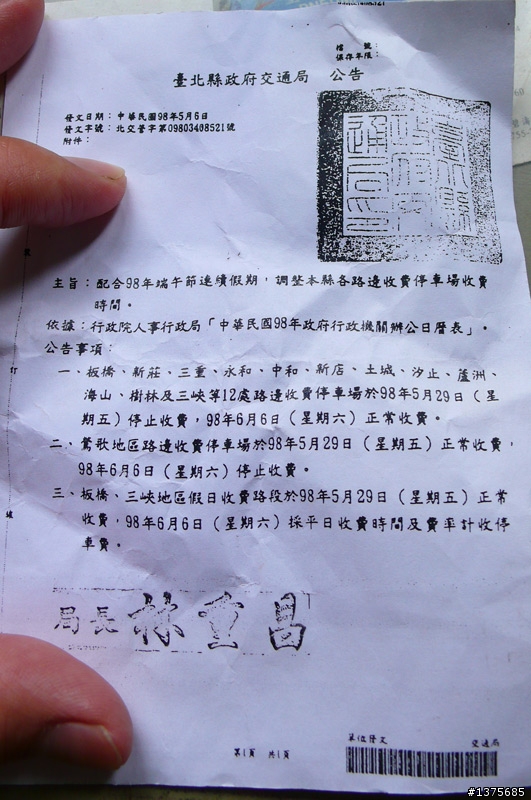 檔 號：
保存年限：
臺北縣政府交通局 公告
發文日期：中華民國98年5月6日
發文字號：北交營字第09803408521號
附件：
主旨：配合98年端午節連續假期，調整本縣各路邊收費停車場收費
時間。
依據：行政院人事行政局「中華民國98年政府行政機關辦公日曆表」。
公告事項：
一、板橋、新莊、三重、永和、中和、新店、土城、汐止、蘆洲、
海山、樹林及三峽等12處路邊收費停車場於98年5月29日（星
期五）停止收費，98年6月6日（星期六）正常收費。
二、鶯歌地區路邊收費停車場於98年5月29日（星期五）正常收費，
98年6月6日（星期六）停止收費。
三、板橋、三峽地區假日收費路段於98年5月29日（星期五）正常
收費，98年6月6日（星期六）採平日收費時間及費率計收停
車費。
訂
線
局長 林重昌
第1頁 共1頁
單位發文 交通局
#1375685